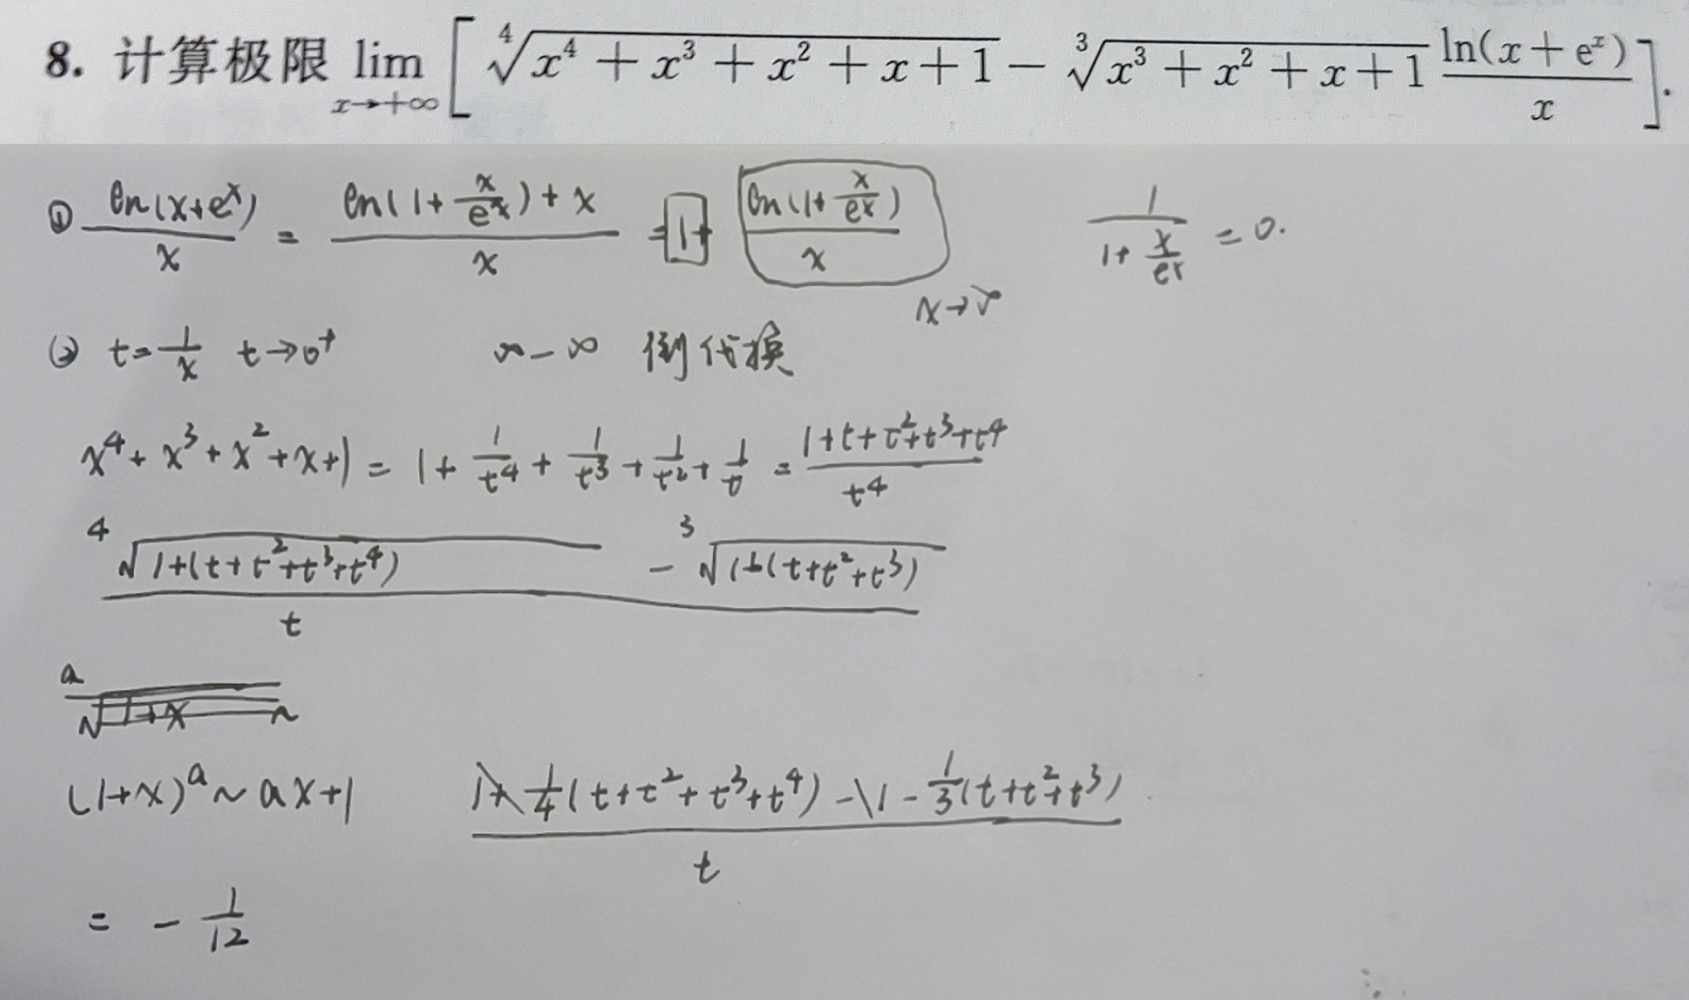 8. 计算极限 lim_{x→+∞} [ ∜(x⁴ + x³ + x² + x + 1) − ∛(x³ + x² + x + 1) ln(x + eˣ)/x ].
① ln(x+eˣ)/x = (ln(1+x/eˣ)+x)/x = 1+ ln(1+x/eˣ)/x 1/(1+x/eˣ) = 0.
x→∞
② t=1/x t→0⁺ ∞-∞ 倒代换
x⁴+x³+x²+x+1 = 1+1/t⁴+1/t³+1/t²+1/t = (1+t+t²+t³+t⁴)/t⁴
(∜(1+(t+t²+t³+t⁴)) - ∛(1+(t+t²+t³)))/t
(1+x)ᵃ~ax+1 (1+1/4(t+t²+t³+t⁴)-1-1/3(t+t²+t³))/t
= -1/12